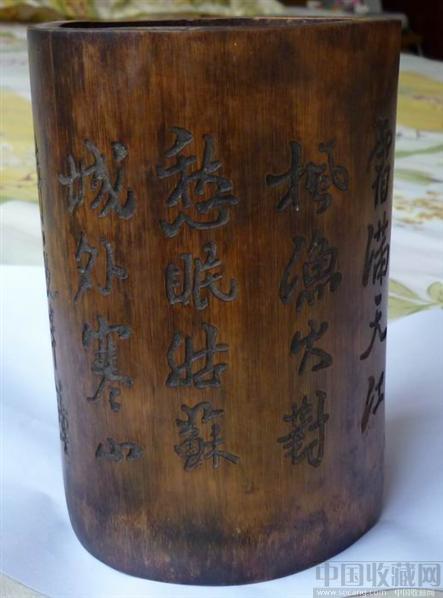 霜满天江
枫渔火對
愁眠姑蘇
城外寒山
中国收藏网
www.socang.com 中国收藏网